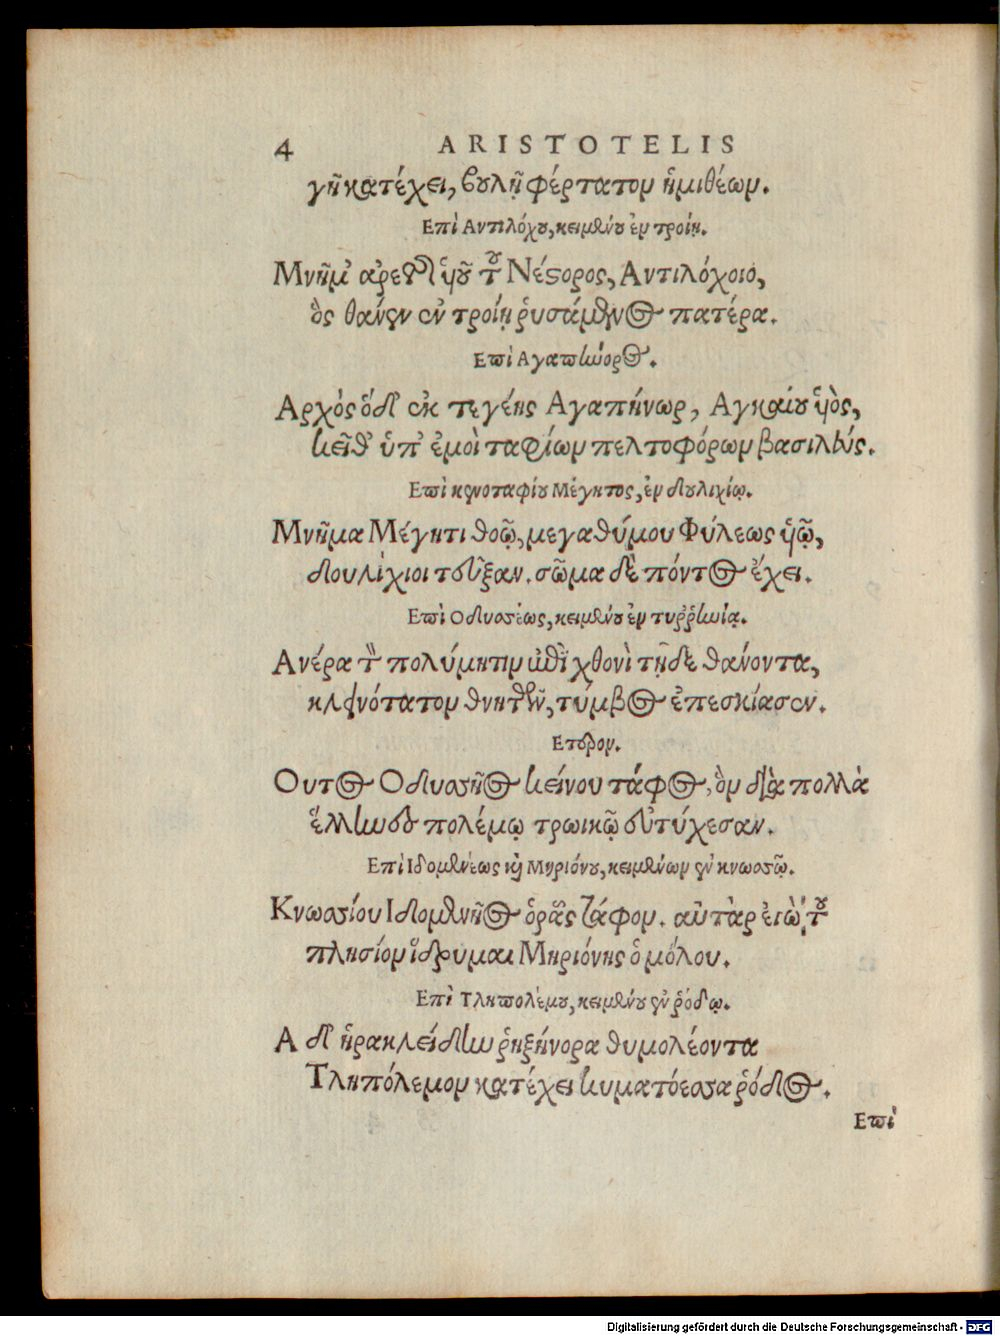 4 ARISTOTELIS
γῆ κατέχει, βουλῇ φέρτατον ἡμιθέων.
Επὶ Αντιλόχου, κειμένου ἐν τροίῃ.
Μνῆμ' ἀρετῆς υἱοῦ τοῦ Νέστορος, Αντιλόχοιο,
ὃς θάνεν ἐν τροίῃ ῥυσάμενος πατέρα.
Επὶ Αγαπήνορος.
Αρχὸς ὅδ' ἐκ τεγέης Αγαπήνωρ, Αγκαίου υἱὸς,
κεῖθ' ὑπ' ἐμοὶ ταφίων πελτοφόρων βασιλεύς.
Επὶ κενοταφίου Μέγητος, ἐν δουλιχίῳ.
Μνῆμα Μέγητι θοῷ, μεγαθύμου Φύλεως υἱῷ,
δουλίχιοι τεῦξαν. σῶμα δὲ πόντος ἔχει.
Επὶ Οδυσσέως, κειμένου ἐν τυρρηνίᾳ.
Ανέρα τὸν πολύμητιν ἐπὶ χθονὶ τῇδε θανόντα,
κλεινότατον θνητῶν, τύμβος ἐπεσκίασεν.
Ετερον.
Ουτος Οδυσσῆος κείνου τάφος, ὃν διὰ πολλὰ
ἕλληνες πολέμῳ τρωικῷ εὐτύχεσαν.
Επὶ Ιδομενέως καὶ Μηριόνου, κειμένων ἐν κνωσσῷ.
Κνωσσίου Ιδομενῆος ὁρᾷς τάφον. αὐτὰρ ἐγώ τοι
πλησίον ἵδρυμαι Μηριόνης ὁ μόλου.
Επὶ Τληπολέμου, κειμένου ἐν ῥόδῳ.
Α δ' ἡρακλείδην ῥηξήνορα θυμολέοντα
Τληπόλεμον κατέχει κυματόεσσα ῥόδος.
Επὶ
Digitalisierung gefördert durch die Deutsche Forschungsgemeinschaft - DFG